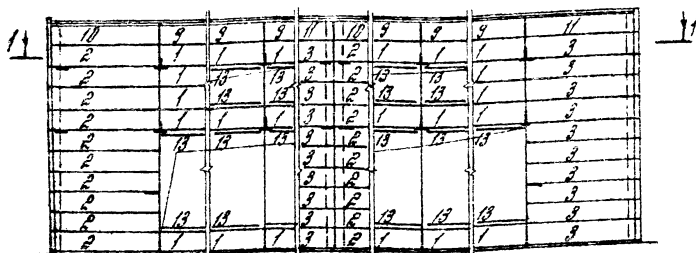 10 9 9 9 11 10 9 9 9 11
1 1
2 1 1 1 3 2 1 1 1 3
2 1 13 13 3 2 13 13 1 3
2 1 13 13 3 2 13 13 1 3
2 1 1 1 3 2 1 1 1 3
2 13 13 13 3 2 13 13 13 3
2 3 2 3
2 3 2 3
2 3 2 3
2 13 13 3 2 13 13 13 3
2 1 1 1 3 2 1 1 1 3